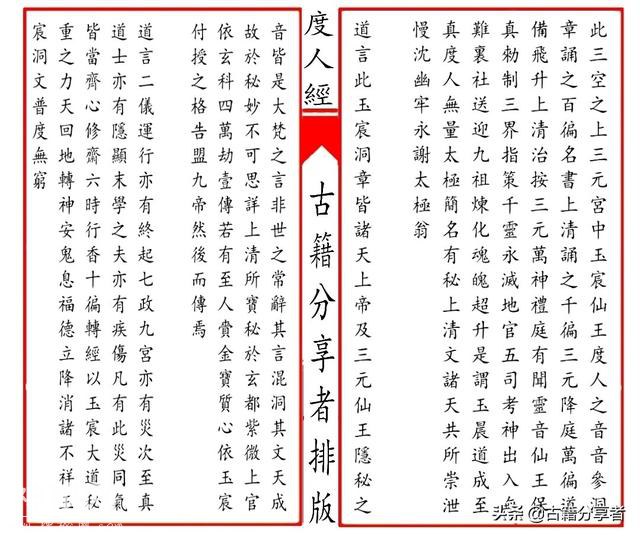 此三空之上三元宮中玉宸仙王度人之音音參洞
章誦之百徧名書上清誦之千徧三元降庭萬徧道
備飛升上清治按三元萬神禮庭有聞靈音仙王保
真勅制三界指策千靈永滅地官五司考神出入無
難裏社送迎九祖煉化魂魄超升是謂玉晨道成至
真度人無量太極簡名有秘上清文諸天共所崇泄
慢沈幽牢永謝太極翁
道言此玉宸洞章皆諸天上帝及三元仙王隱秘之
度人經
古籍分享者排版
音皆是大梵之言非世之常辭其言混洞其文天成
故於秘妙不可思詳上清所寶秘於玄都紫微上官
依玄科四萬劫壹傳若有至人賫金寶質心依玉宸
付授之格告盟九帝然後而傳焉
道言二儀運行亦有終起七政九宮亦有災次至真
道士亦有隱顯末學之夫亦有疾傷凡有此災同氣
皆當齊心修齋六時行香十徧轉經以玉宸大道秘
重之力天回地轉神安鬼息福德立降消諸不祥玉
宸洞文普度無窮
头条 @古籍分享者